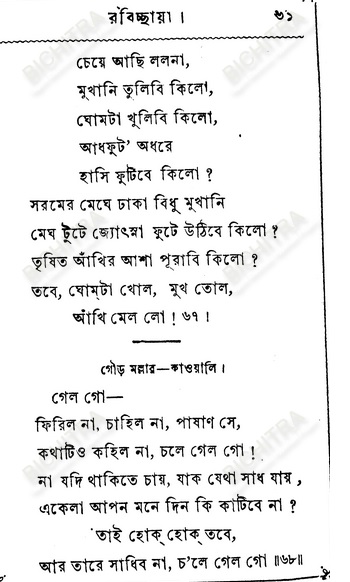 রবিচ্ছায়া। ৬১
চেয়ে আছি ললনা,
মুখানি তুলিবি কিলো,
ঘোমটা খুলিবি কিলো,
আধফুট' অধরে
হাসি ফুটিবে কিলো ?
সরমের মেঘে ঢাকা বিধু মুখানি
মেঘ টুটে জ্যোৎস্না ফুটে উঠিবে কিলো ?
তৃষিত আঁখির আশা পূরাবি কিলো ?
তবে, ঘোম্‌টা খোল, মুখ তোল,
আঁখি মেল লো ! ৬৭ ।
গৌড় মল্লার—কাওয়ালি ।
গেল গো—
ফিরিল না, চাহিল না, পাষাণ সে,
কথাটিও কহিল না, চলে গেল গো !
না যদি থাকিতে চায়, যাক যেথা সাধ যায়,
একেলা আপন মনে দিন কি কাটিবে না ?
তাই হোক্ হোক্ তবে,
আর তারে সাধিব না, চ'লে গেল গো ॥৬৮॥
BICHITRA
BICHITRA
BICHITRA
BICHITRA